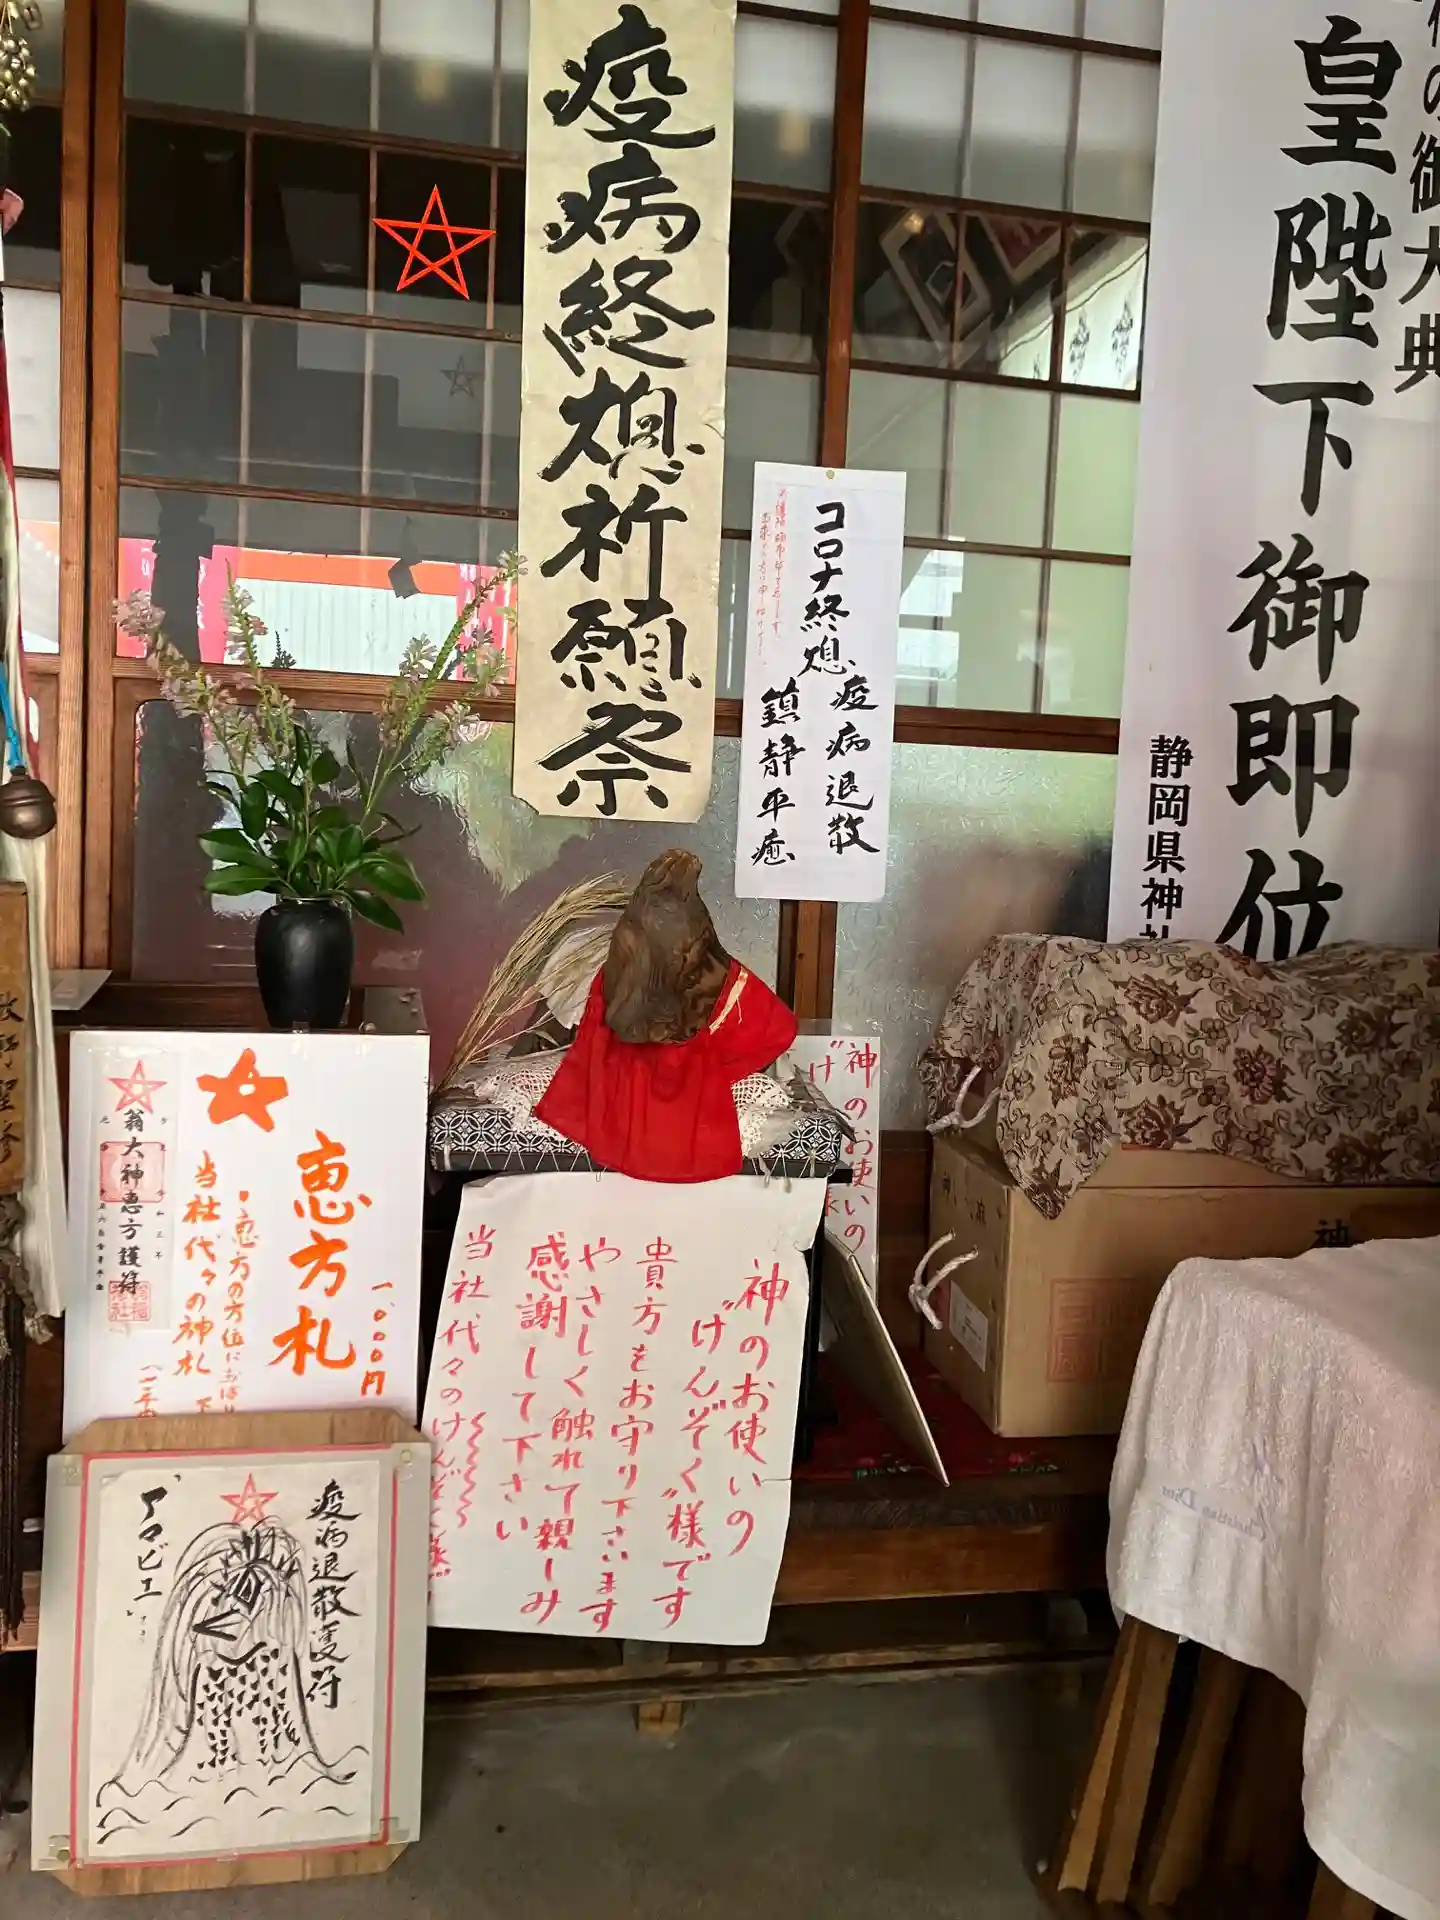 疫病終熄祈願祭
コロナ終熄
疫病退散
鎮静平癒
御大典
皇陛下御即位
静岡県神社
神のお使いの
"げ
翁大神恵方護符
恵方札
一、〇〇〇円
・恵方の方位に
当社代々の神札
神のお使いの
"けんぞく"様です
貴方をお守り下さいます
やさしく触れて親しみ
感謝して下さい
当社代々のけんぞく様
疫病退散護符
"アマビエ"
神
Christian Dior